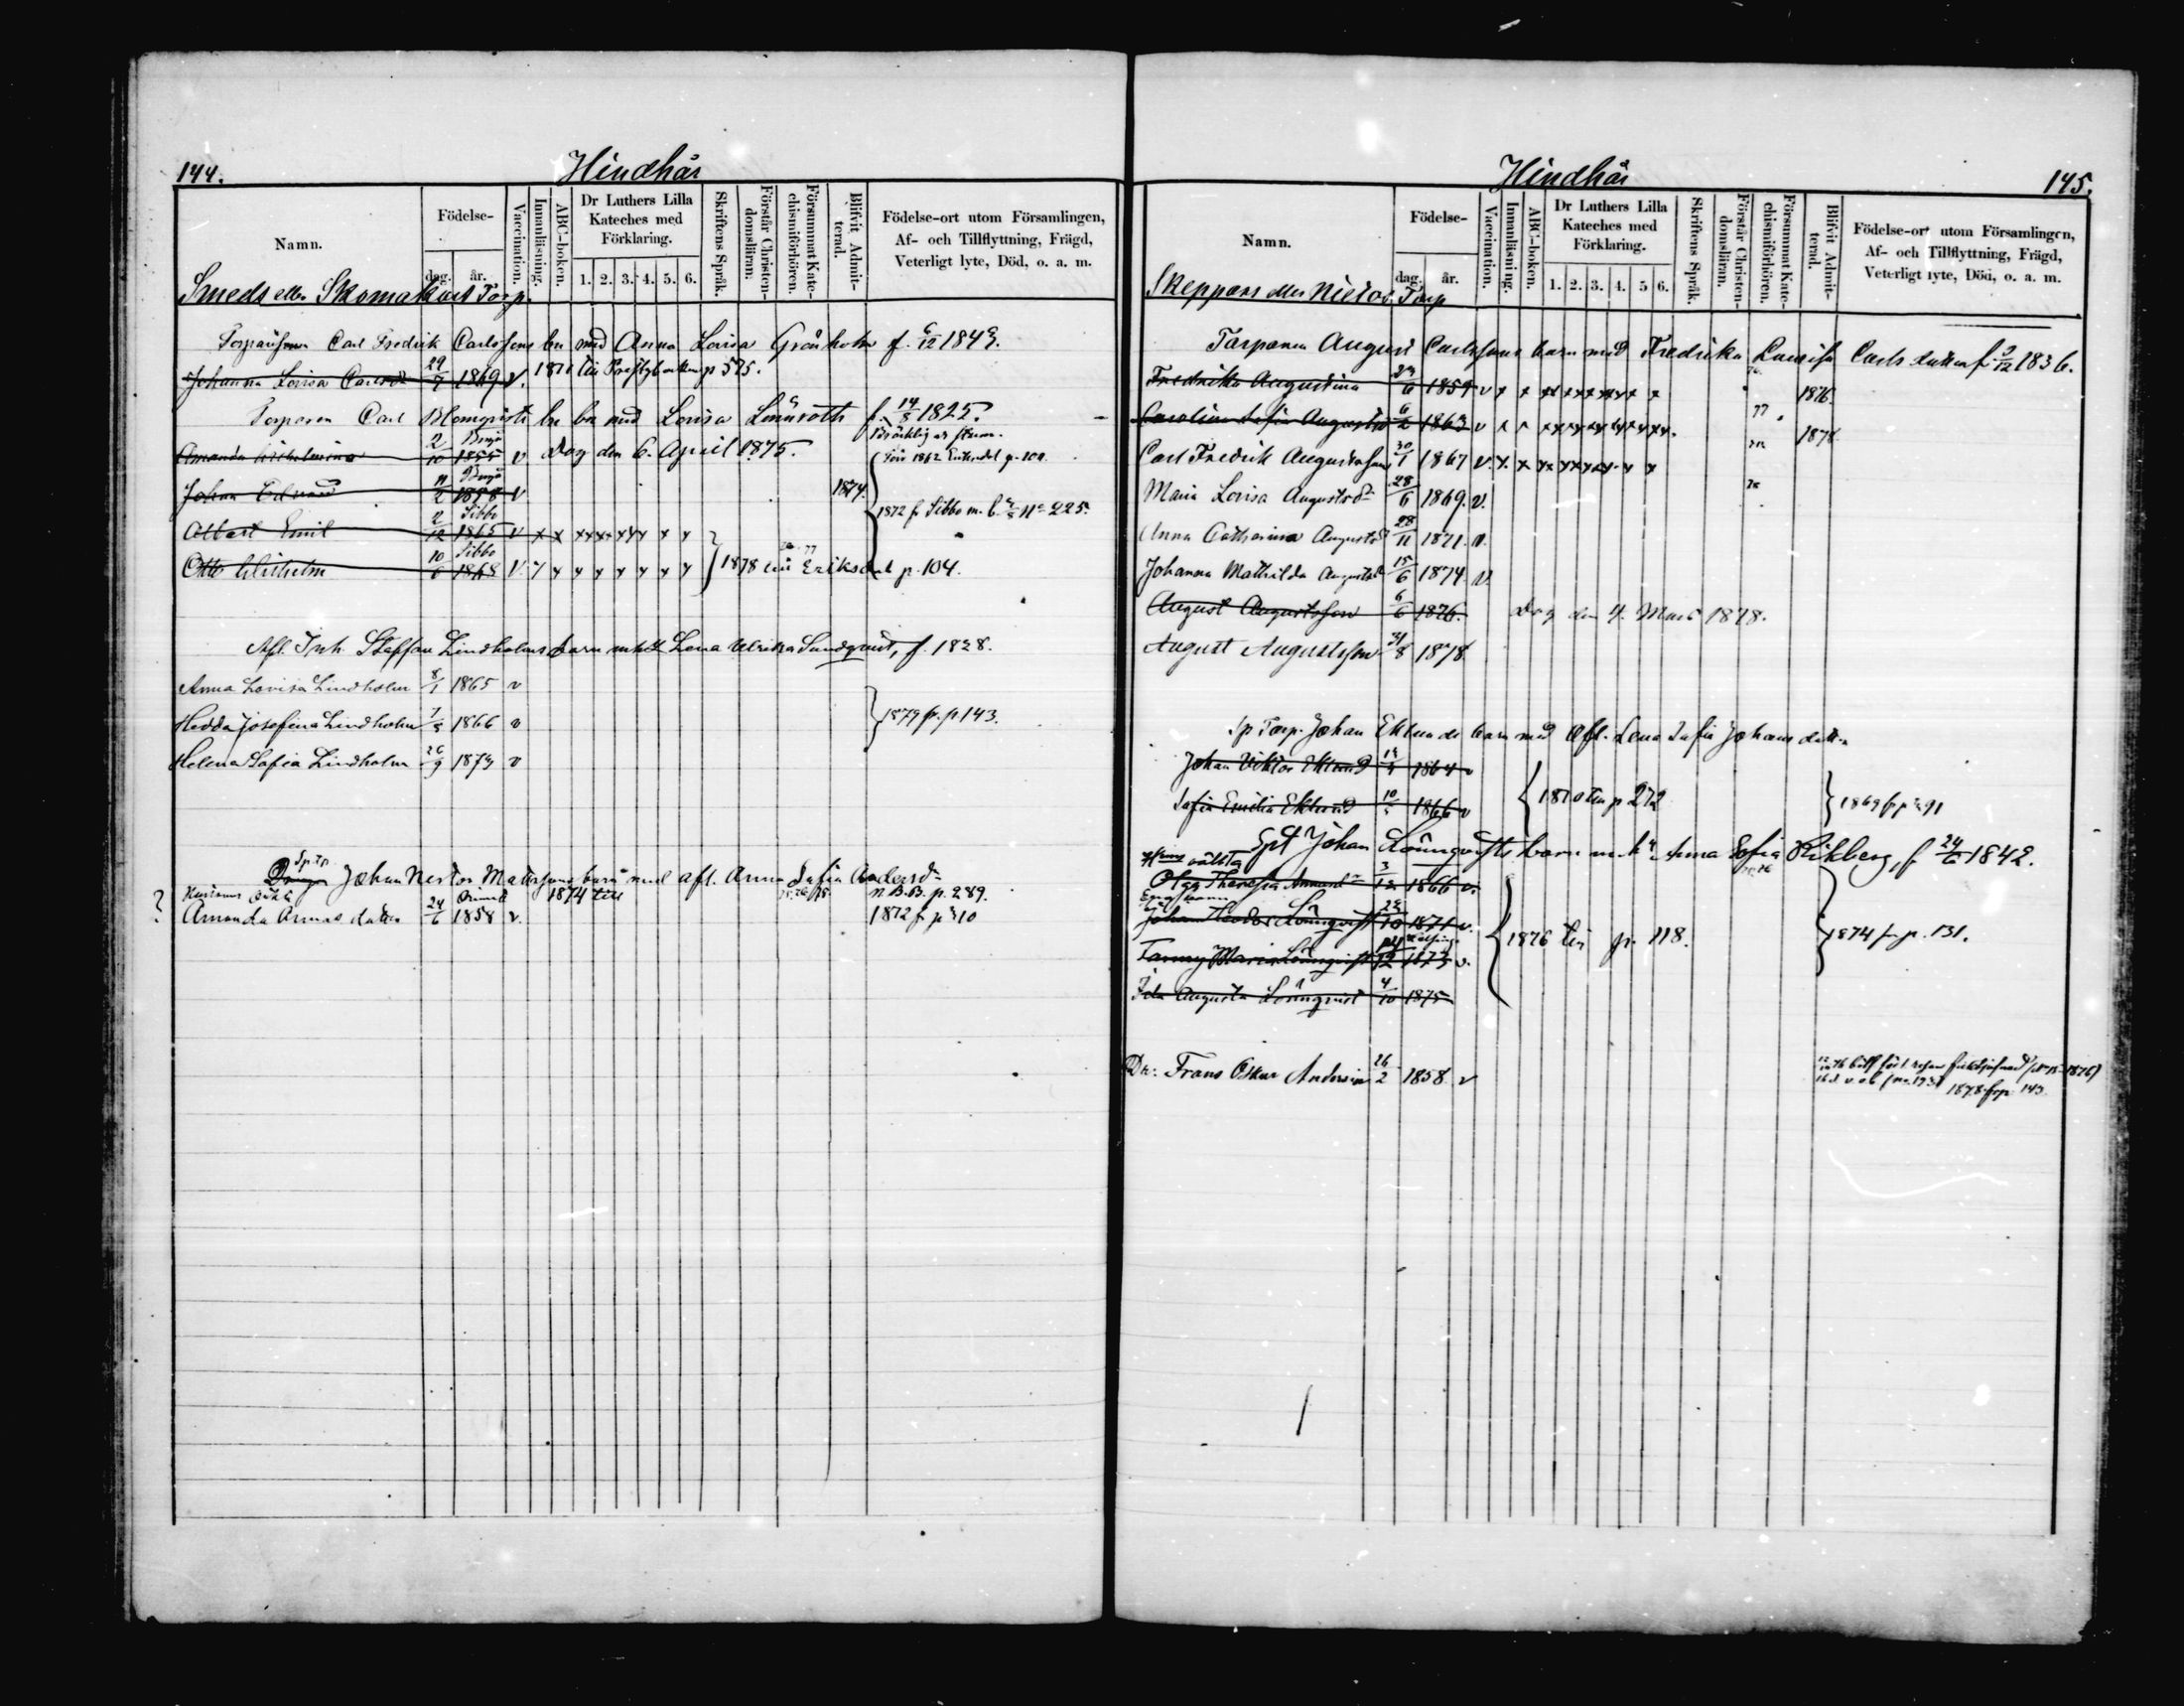 144.
Hindhår
Namn.
Födelse-
dag. år.
Vaccination.
Innanläsning.
ABC-boken.
Dr Luthers Lilla
Kateches med
Förklaring.
1. 2. 3. 4. 5. 6.
Skriftens Språk.
Förstår Christen-
domsläran.
Försummat Kate-
chismiförhören.
Blifvit Admit-
terad.
Födelse-ort utom Församlingen,
Af- och Tillflyttning, Frägd,
Veterligt lyte, Död, o. a. m.
Smeds eller Skomakars Torp.
Carl Fredrik Carlssons bn med Anna Lovisa Grönholm f. 6/12 1849.
Johanna Lovisa Carlsd 29/7 1869 v. p 575.
Torparen Carl Blomqvists bn med Lovisa Lönnroth f. 14/8 1825.
Amanda Wilhelmina 2/10 1855 v Dog den 6. April 1875.
Johan Edvard 11/2 1858 v 1874.
Sibbo
Albert Emil 2/12 1865 v x x x x x x x x x x 1872 fr Sibbo m. b. No 225.
Sibbo
Otto Wilhelm 10/6 1868 v. x x x x x x x x x 1878 till Eriksdal p. 104.
Afl. Inh. Staffan Lindholms barn m Lena Ulrika Sundqvist, f. 1828.
Anna Lovisa Lindholm 8/1 1865 v
Hedda Josefina Lindholm 7/5 1866 v 1879 fr. p 143.
Helena Sofia Lindholm 26/9 1873 v
Johan Nestor Mattssons barn med afl. Anna Sofia Andersd
1874 till N.B.B. p. 289.
? Amanda Annas dotter 24/6 1858 v. 1872 fr p 310
Hindhår
145.
Namn.
Födelse-
dag. år.
Vaccination.
Innanläsning.
ABC-boken.
Dr Luthers Lilla
Kateches med
Förklaring.
1. 2. 3. 4. 5 6.
Skriftens Språk.
Förstår Christen-
domsläran.
Försummat Kate-
chismiförhören.
Blifvit Admit-
terad.
Födelse-ort utom Församlingen,
Af- och Tillflyttning, Frägd,
Veterligt lyte, Död, o. a. m.
Skeppars eller Nietos Torp
Torparen August Carlssons barn med Fredrika Lovisa Carls dotter f. 9/12 1836.
Fredrika Augustina 23/6 1859 v x x x x x x x x x x 1876
Carolina Sofia Augustsd 6/2 1863 v x x x x x x x x x x 77 1878
Carl Fredrik Augustsson 30/1 1867 v. x. x x x x x x x x x
Maria Lovisa Augustsd 28/6 1869. v.
Anna Catharina Augustsd 28/11 1871. v.
Johanna Mathilda Augustsd 15/6 1874 v.
August Augustsson 6/6 1876. Dog den 4. Mars 1878.
August Augustsson 31/8 1878
Sp Torp. Johan Eklunds barn med Afl. Lena Sofia Johans dotter
Johan Viktor Eklund 1864 v
Sofia Emilia Eklund 1866 v 1870 till p 272 1869 fr p 91
Spt Johan Lönnqvists barn m. h. Anna Sofia Rikberg, f 24/6 1842.
Olga Theresia Annasd 3/12 1866 v.
Johan Theodor Lönnqvist 28/10 1871 v.
Fanny Maria Lönnqvist 1873 v. 1876 till p. 118. 1874 fr p. 131.
Ida Augusta Lönnqvist 4/10 1875
Dr. Frans Oskar Andersson 26/2 1858 v
1878 fr p 143